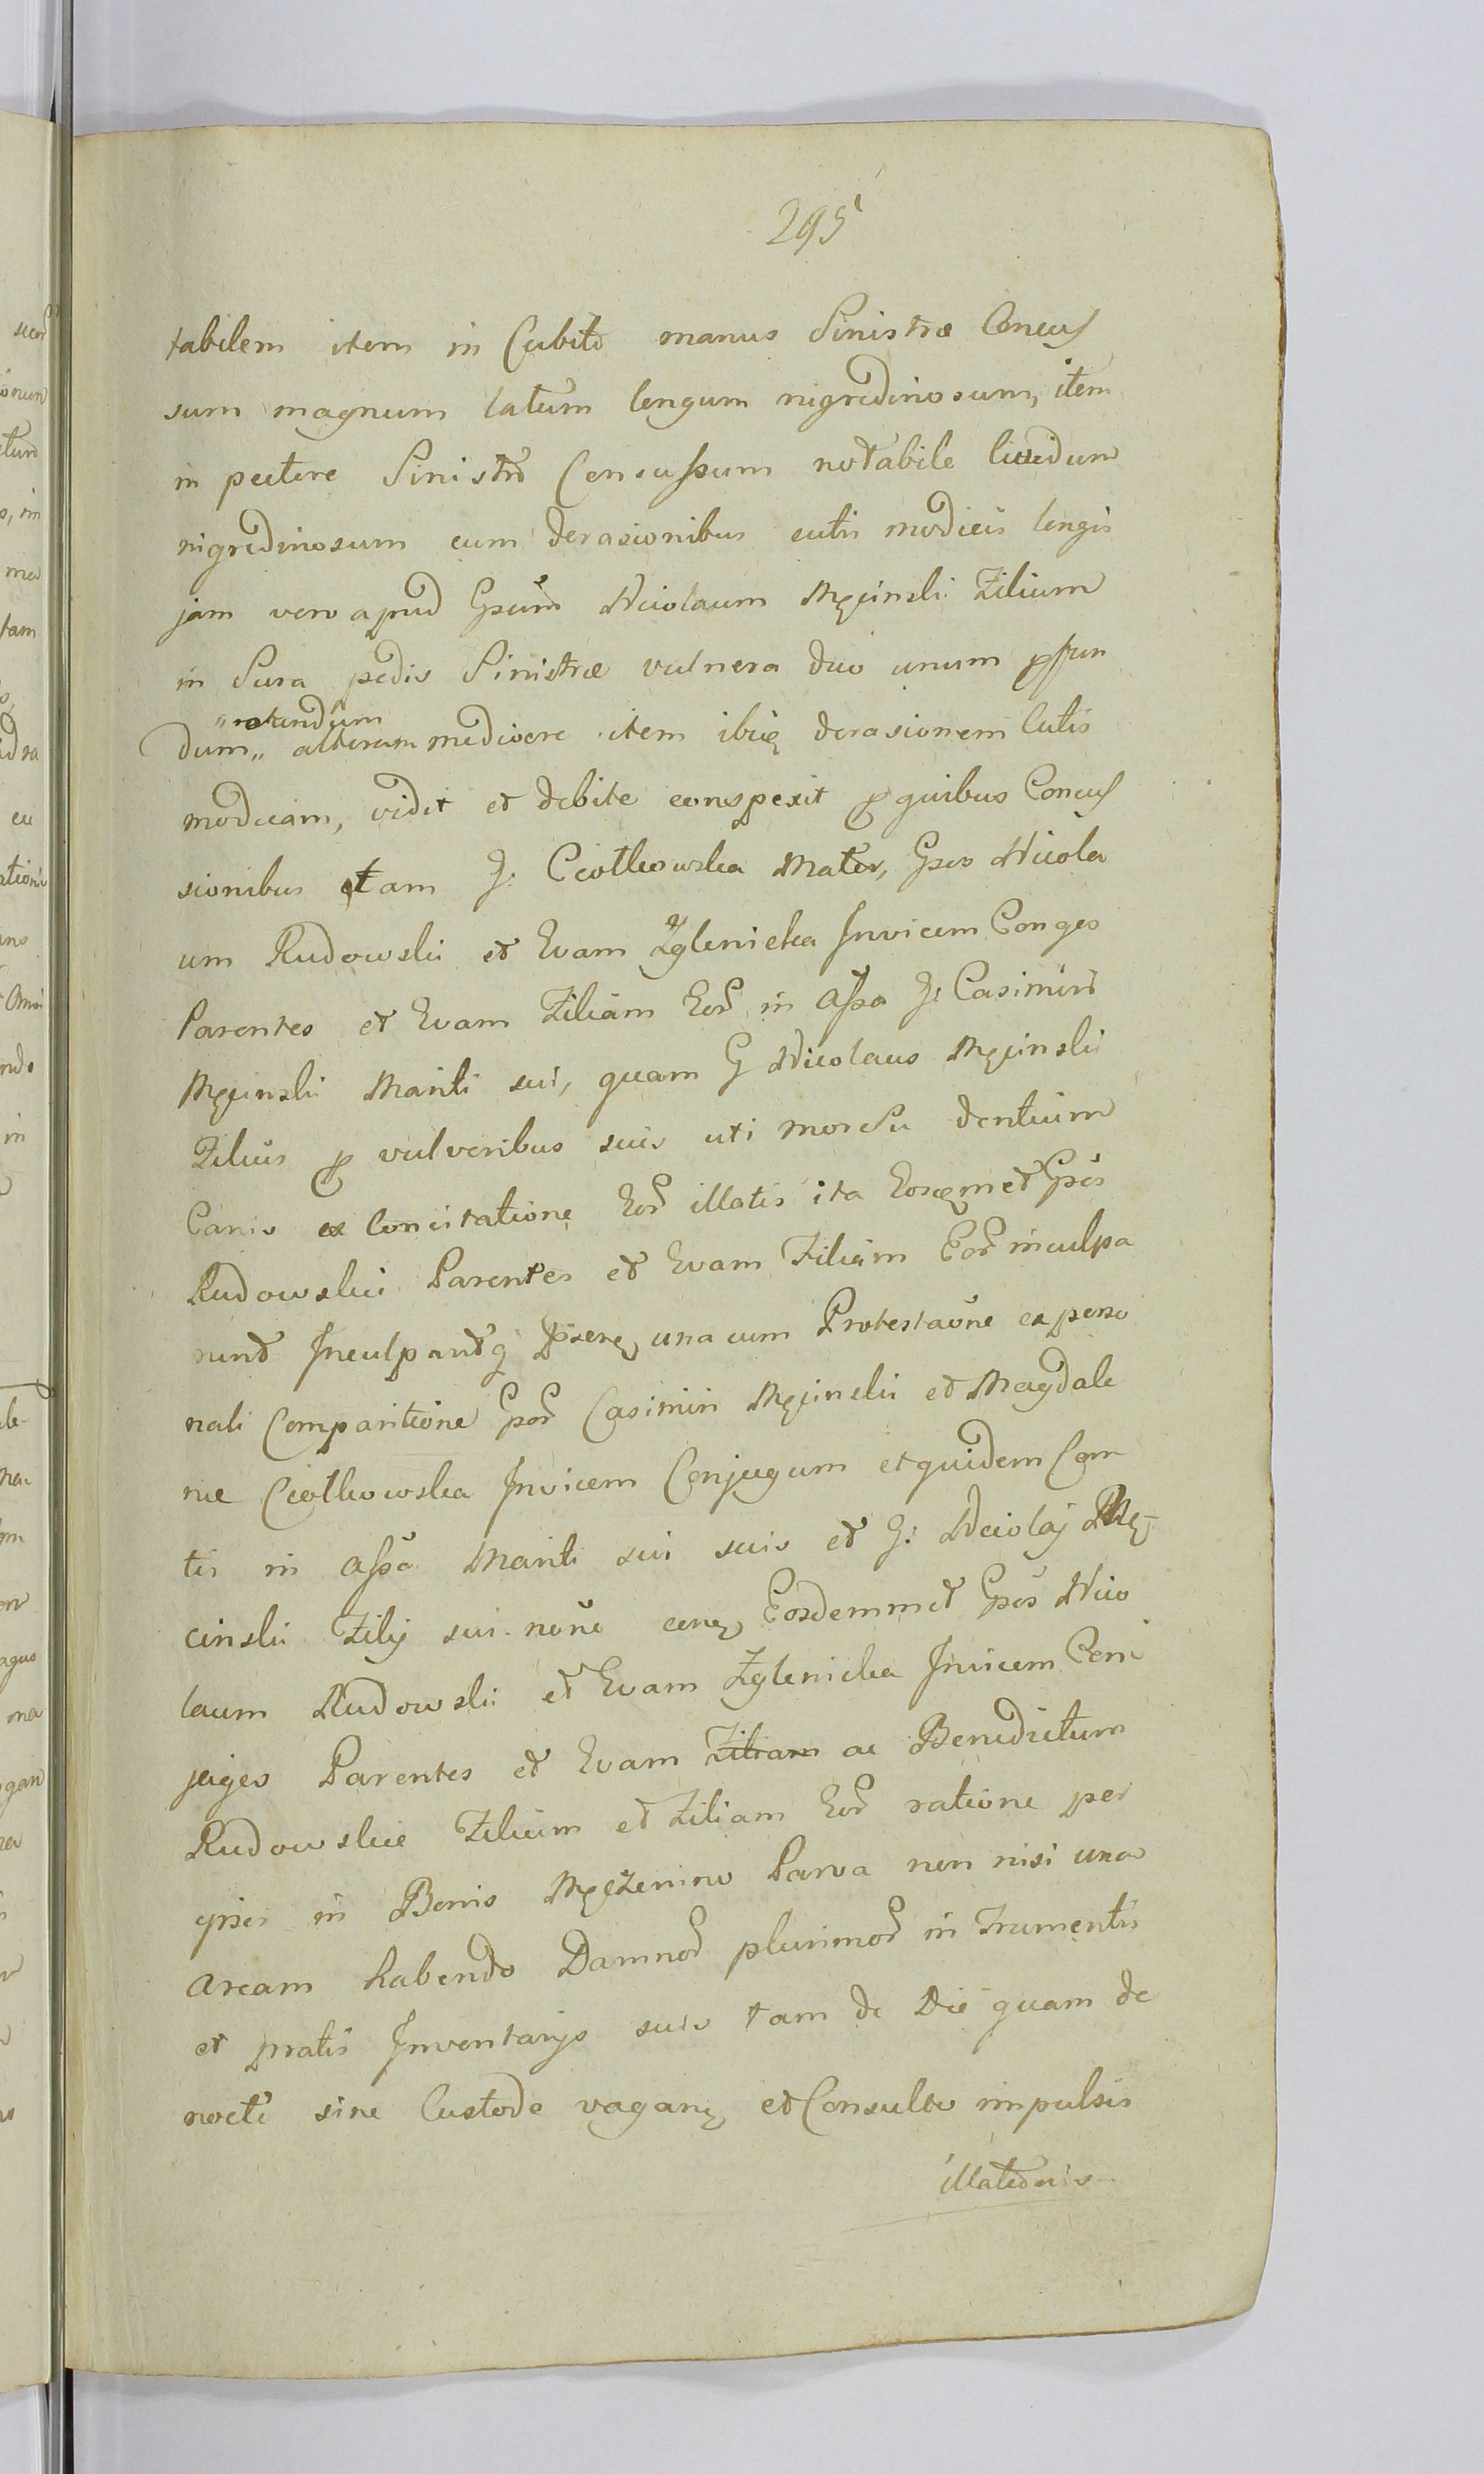 295
tabilem item in Cubito manus Sinistræ Concus
sum magnum latum longum nigredinosum, item
in pectore Sinistro Concussum notabile lividum
nigredinosum cum derasionibus cutis modicis longis
jam vero apud Gsum Nicolaum Męcinski Filium
in Sura pedis Sinistræ vulnera duo unum pfun
"notandum
dum,, alterum mediocre item ibiq derasionem Cutis
modicam, vidit et debite conspexit p quibus Concus
sionibus tam G: Ciotkowska Mater, Gsos Nicola
um Rudowski et Evam Zglenicka Invicem Conges
Parentes et Evam Filiam Eor in Assa G: Casimiri
Męcinski Mariti sui, quam G Nicolaus Męcinski
Filius p vulneribus suis uti morsu dentium
Canis ex Concitatione Eor illatis ita Eosqmet Gsos
Rudowskii Parentes et Evam Filiam Eor inculpa
runt Inculpantq Pserq una cum Protestaone ex perso
nali Comparitione Gsor Casimiri Męcinskii et Magdale
næ Ciotkowska Invicem Conjugum et quidem Con
tis in assa Mariti sui suis et G: Nicolaj Mę-
cinskii Filij sui noīe conq Eosdemmet Gsos Nico
laum Rudowskii et Evam Zglenicka Invicem Con
juges Parentes et Evam Filiam ac Benedictum
Rudowskie Filium et Filiam Eor ratione per
ipsos in Bonis Męczenino Parva non nisi una
aream habendo Damnor plurimor in Frumentis
et pratis Inventarijs suis tam de Die quam de
nocte sine Custode vaganq et Consulto impulsis
illatornis